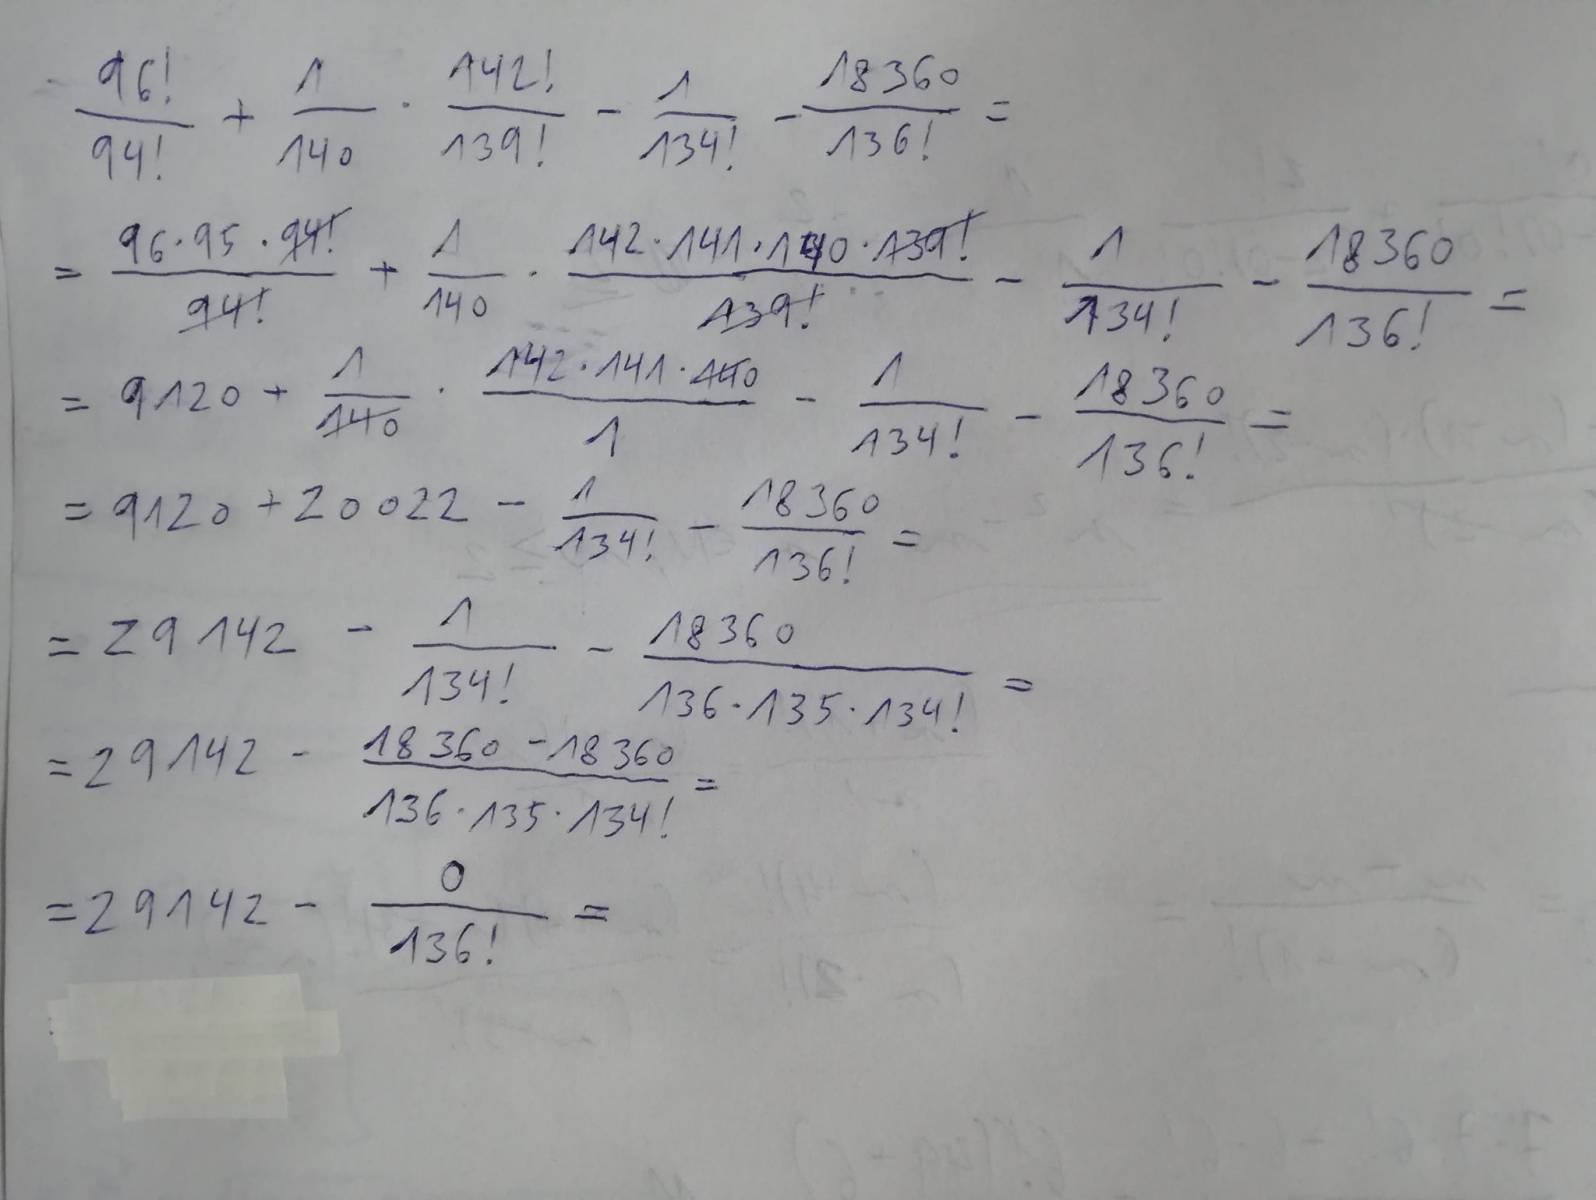 96!/94! + 1/140 · 142!/139! - 1/134! - 18360/136! =
= 96·95·94!/94! + 1/140 · 142·141·140·139!/139! - 1/134! - 18360/136! =
= 9120 + 1/140 · 142·141·140/1 - 1/134! - 18360/136! =
= 9120 + 20022 - 1/134! - 18360/136! =
= 29142 - 1/134! - 18360/136·135·134! =
= 29142 - 18360-18360/136·135·134! =
= 29142 - 0/136! =